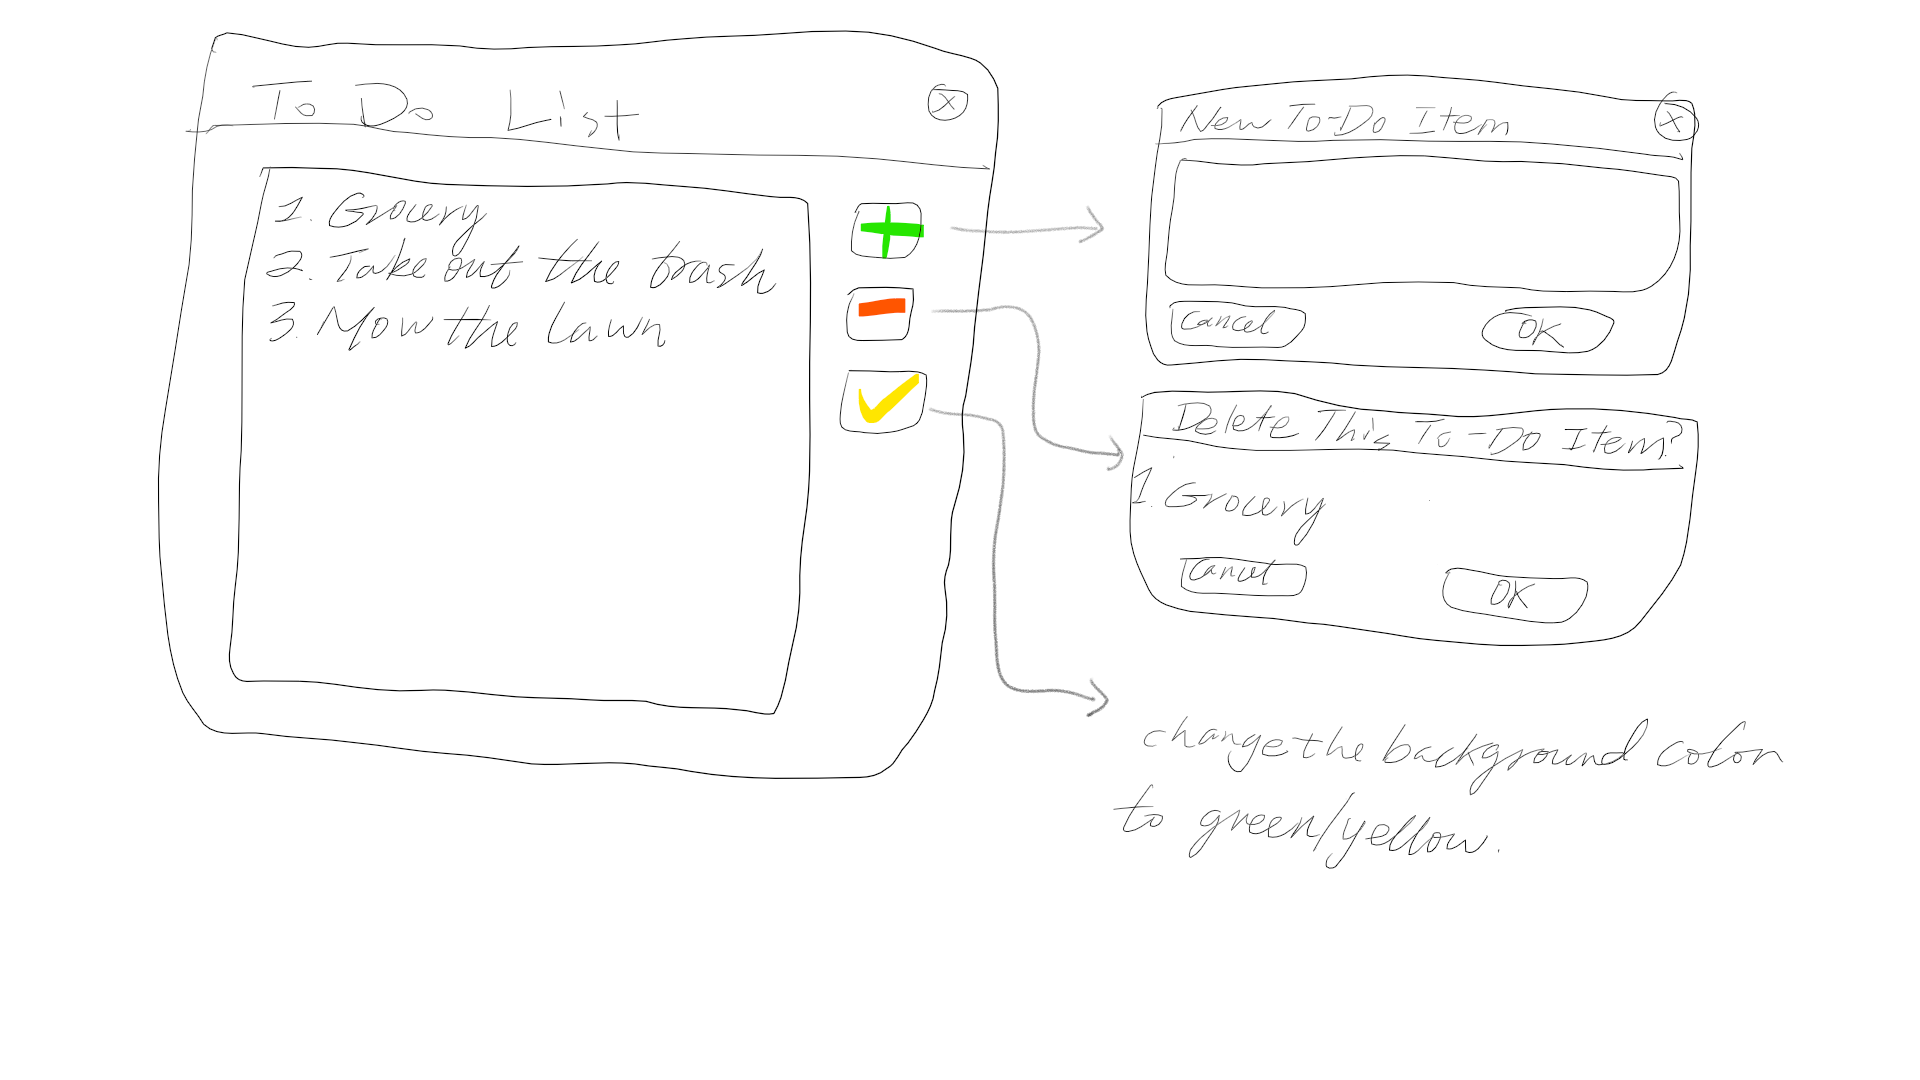 To Do List
X
1. Grocery
2. Take out the trash
3. Mow the Lawn
New To-Do Item
X
Cancel
OK
Delete This To-Do Item?
1. Grocery
Cancel
OK
change the background color
to green/yellow.